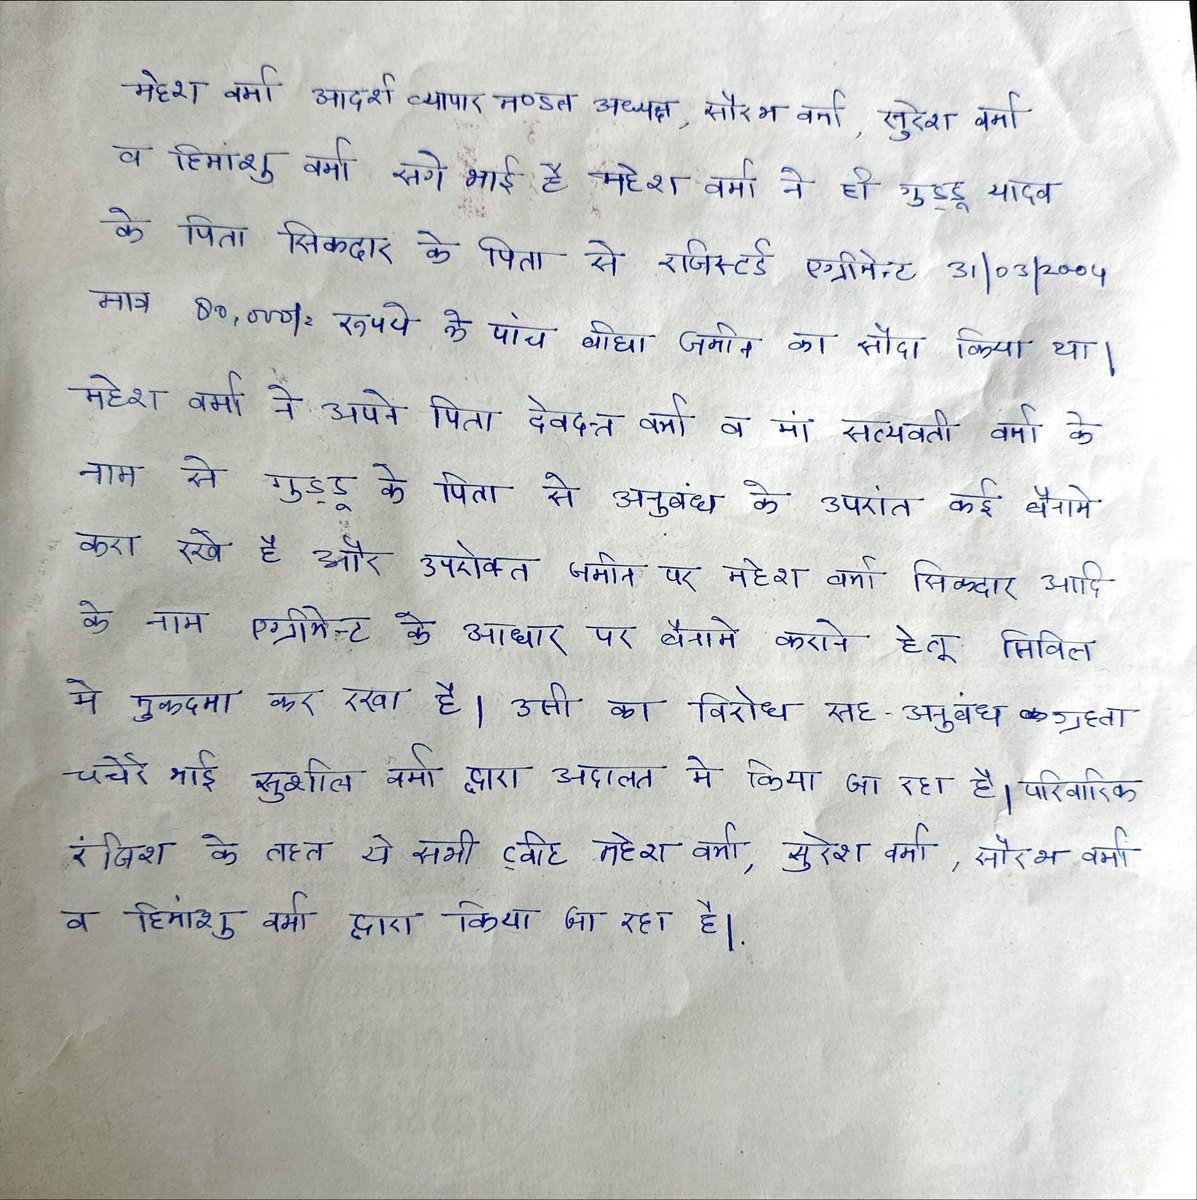 महेश वर्मा आदर्श व्यापार मण्डल अध्यक्ष, सौरभ वर्मा, सुरेश वर्मा
व हिमांशु वर्मा सगे भाई है महेश वर्मा ने ही गुड्डू यादव
के पिता सिकदार के पिता से रजिस्टर्ड एग्रीमेन्ट 31/03/2004
मात्र रूपये के पांच बीघा जमीन का सौदा किया था|
महेश वर्मा ने अपने पिता देवदत्त वर्मा व मां सत्यवती वर्मा के
नाम से गुड्डू के पिता से अनुबंध के उपरांत कई बैनामे
करा रखे है और उपरोक्त जमीन पर महेश वर्मा सिकदार आदि
के नाम एग्रीमेन्ट के आधार पर बैनामे कराने हेतू सिविल
मे मुकदमा कर रखा है| उसी का विरोध सह-अनुबंध ग्रहता
चचेरे भाई सुशील वर्मा द्वारा अदालत मे किया जा रहा है| परिवारिक
रंजिश के तहत ये सभी ट्वीट महेश वर्मा, सुरेश वर्मा, सौरभ वर्मा
व हिमांशु वर्मा द्वारा किया जा रहा है|.